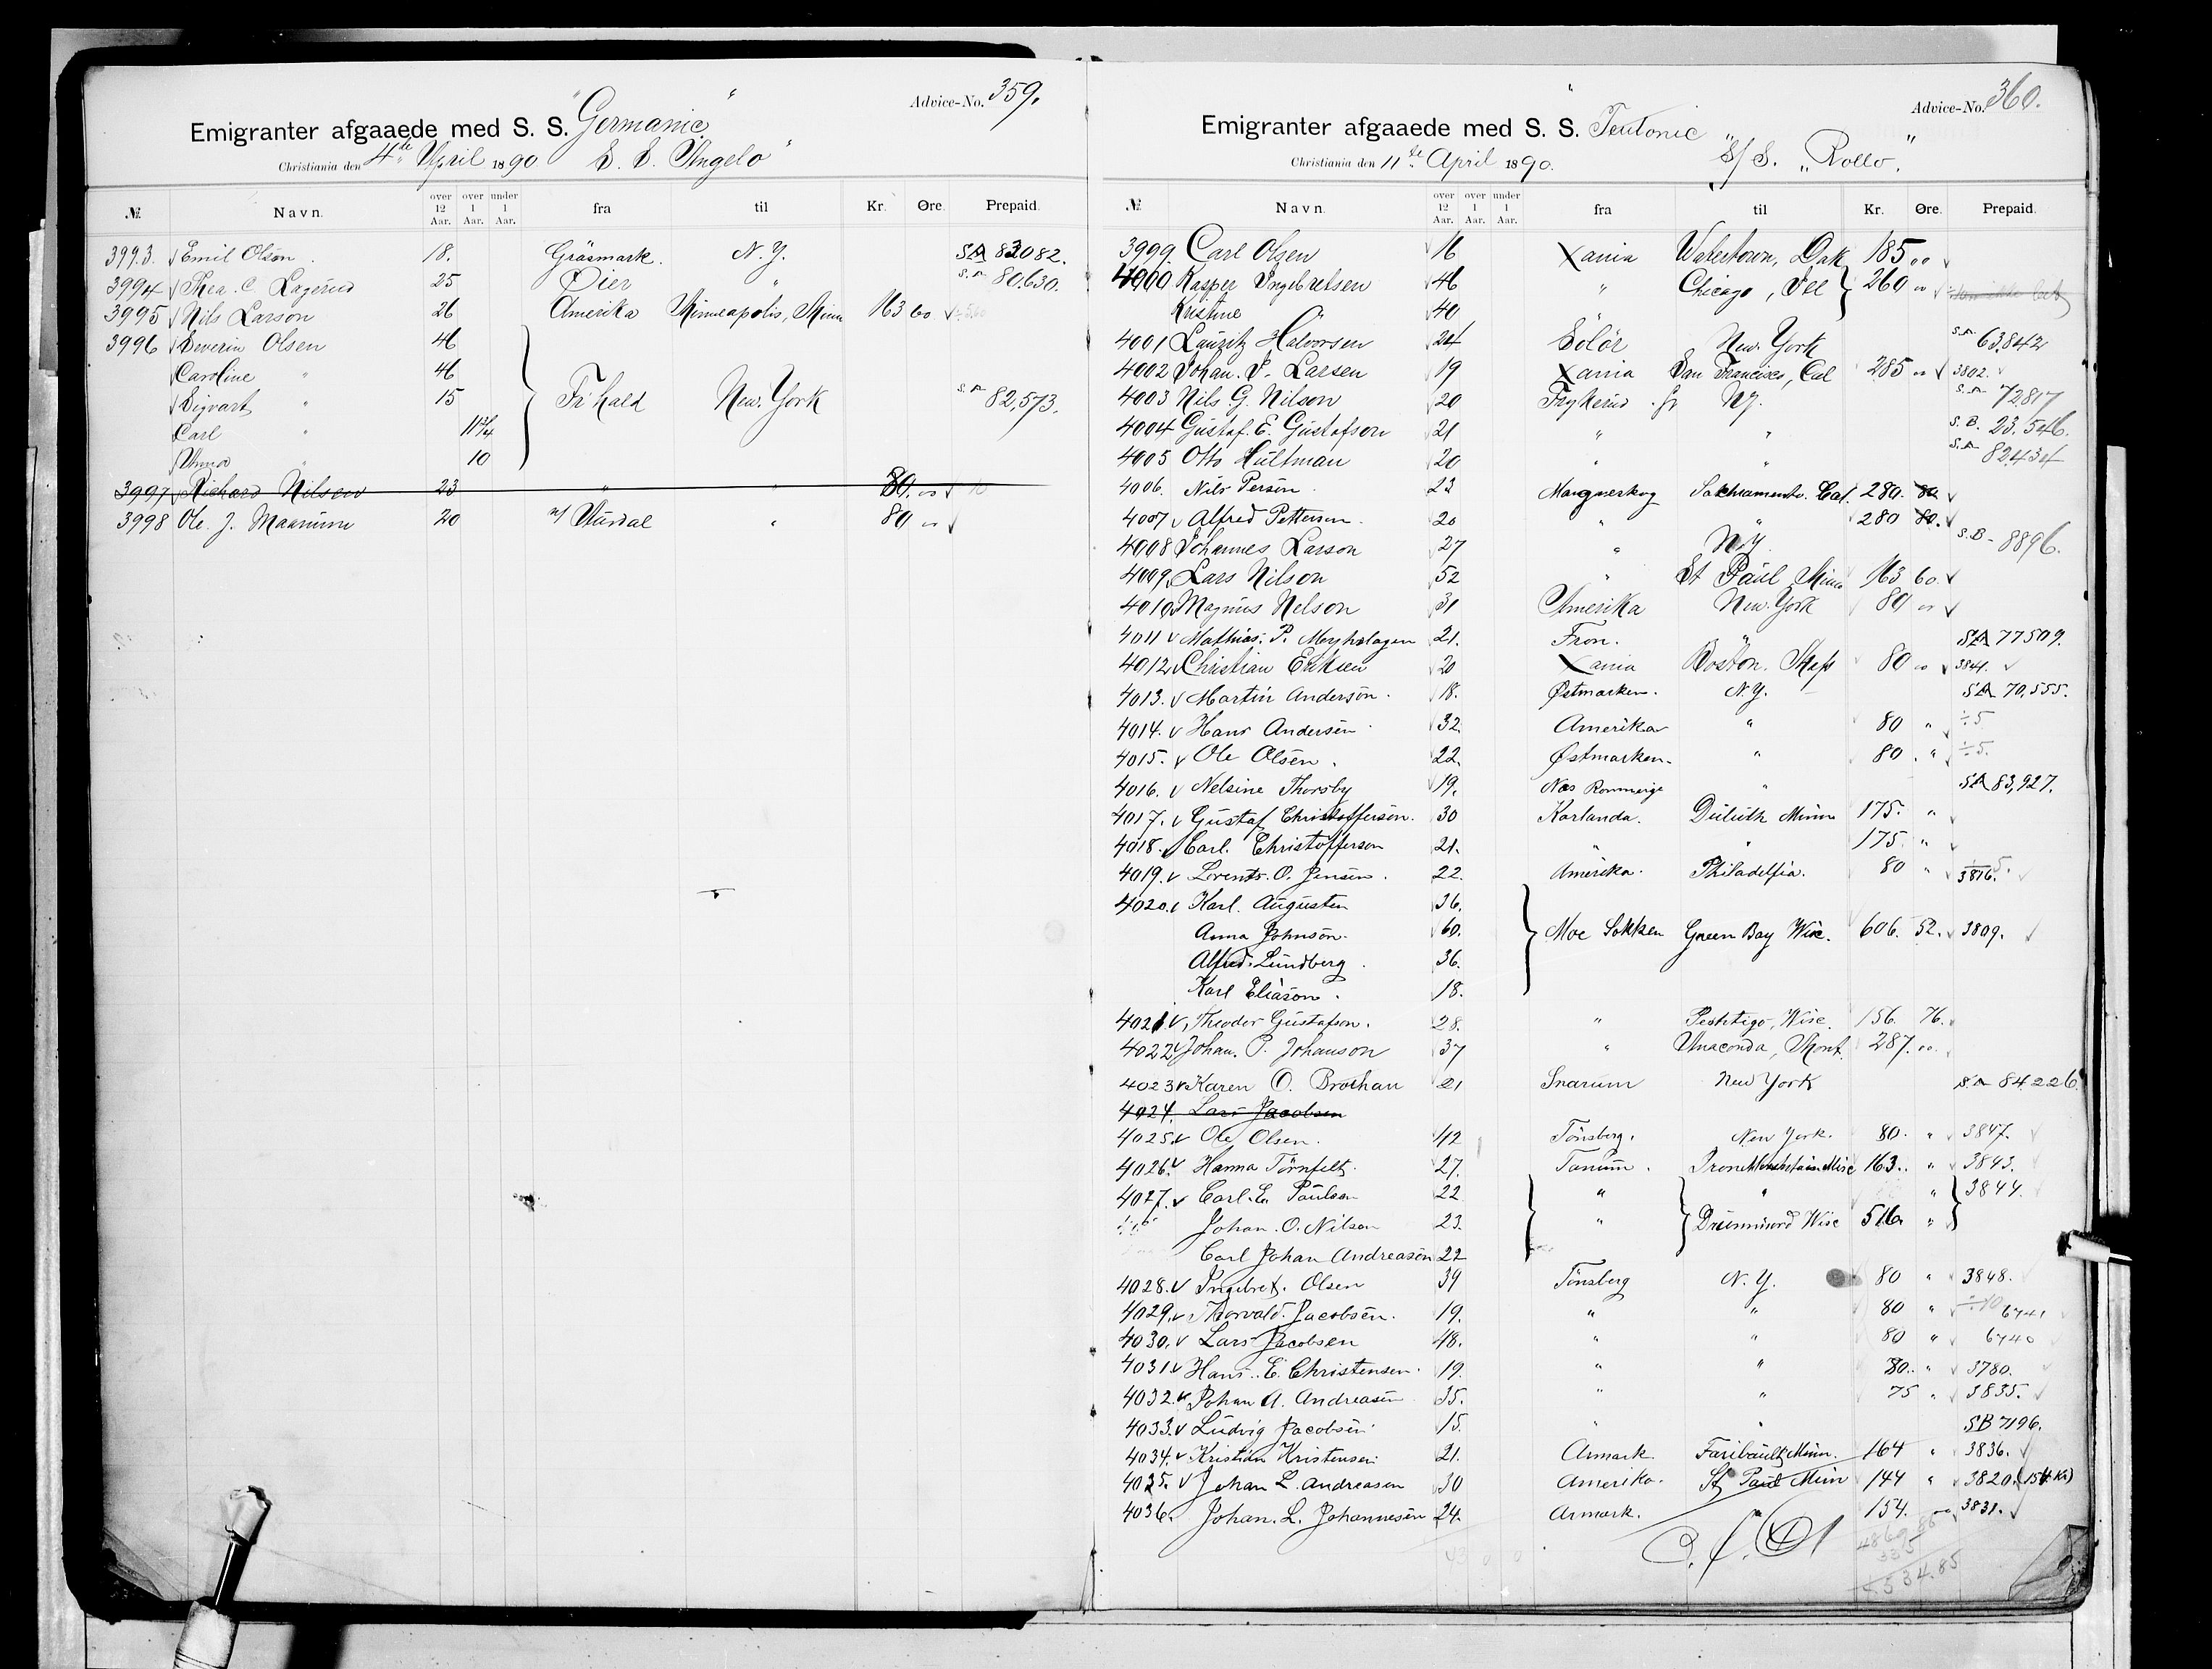 Advice-No. 359.
Emigranter afgaaede med S. S. "Germanic"
Christiania den 4de April 1890 S. S. Angelo"
№ Navn. over 12 Aar. over 1 Aar. under 1 Aar. fra til Kr. Øre. Prepaid.
3993. Emil Olson 18. Gräsmark. N. Y. SA 83082.
3994 Thea. C. Lagerud 25 Öier " S.A. 80.630.
3995 Nils Larson 26 Amerika Minneapolis, Minn 163 60
3996 Severin Olsen 46
Caroline " 46
Sigvart " 15 Fr hald New. York S.A. 82,573.
Carl " 11 3/4
Anna " 10
3997 Richard Nilsen 23 " " 80. 00 10
3998 Ole. J. Maanum 20 n/ Stürdal " 80 00
Advice-No. 360.
Emigranter afgaaede med S. S. "Teutonic"
Christiania den 11te April 1890. S/S. "Rollo."
№ Navn. over 12 Aar. over 1 Aar. under 1 Aar. fra til Kr. Øre. Prepaid.
3999. Carl Olsen 16 Xania Watertown, Dak 185 00
4000 Kasper Ingebretsen 46 " Chicago, Ill 260 00
Kristine " 40
4001 Lauritz Halvorsen 24 Solör New. York S.A. 63,842
4002 Johan. J. Larsen 19 Xania San Francisco, Cal 285 00 3802.
4003 Nils G. Nilson 20 Frykerud N.Y. S.A. 72817
4004 Gustaf. E. Gustafson 21 " " S.B. 23.546.
4005 Otto Hultman 20 " " S.A. 82,434
4006. Nils Person 23 Mangneskog Sachramento. Cal. 280. 80
4007 Alfred Petterson. 20 " " 280 80.
4008 Johannes Larson 27 " N.Y. S.B- 8896.
4009. Lars Nilson 52 " St Paul Minn 163 60
4010 Magnus Nelson 31 Amerika New. York 80 00
4011 Mathias. P. 21. Fron. " SA 77509.
4012 Christian Eriksen 20 Xania Boston. Mass 80 00 3841.
4013. Martin Anderson. 18. Østmarken. N.Y. SA 70,555.
4014. Hans Andersen 32. Amerika " 80 " ÷5
4015. Ole Olsen. 22. Østmarken. " 80. " ÷5.
4016. Nelsine Thorsby 19. Næs Rommerige " SA 83,927.
4017. Gustaf Christofferson. 30 Karlanda. Duluth Minn 175. "
4018. Carl. Christofferson 21. " " 175 "
4019. Lorents. O. Jensen. 22. Amerika. Philadelfia. 80 " 3816.
4020. Karl. Augusten 36.
Anna Johnson. 60. Moe Sokken Green Bay Wisc. 606. 52. 3809.
Alfred. Lundberg. 36.
Karl Eliason. 18.
4021. Theoder Gustafson. 28. " Peshtigo, Wisc. 156. 76.
4022 Johan. P. Johanson 37 " Anaconda, Mont. 287. 00.
4023 Karen O. Brothan 21 Snarum New York S.A 84226.
4024. Lars Jacobsen
4025. Ole Olsen. 42 Tönsberg. New York. 80. " 3847.
4026. Hanna Törnfelt. 27. Tanum. 163. " 3843.
4027. Carl. L. Paulson 22 " " " 3844.
Johan. O. Nilson 23. " Drummond Wisc 516. "
Carl Johan Andreasen 22
4028. Ingebret. Olsen 39 Tönsberg N. Y. 80 " 3848.
4029. Thorvald. Jacobsen. 19. " " 80 " ÷10 6741
4030. Lars Jacobsen 48. " " 80 " 6740
4031. Hans. E. Christensen. 19. " " 80. " 3780.
4032. Johan A. Andreasen 35. " " 75 " 3835.
4033. Ludvig Jacobsen 15. " " SB 7196.
4034. Kristian Kristensen 21. Armark. Faribault, Minn. 164 " 3836.
4035. Johan L. Andreasen 30 Amerika. St. Paul Min 144 " 3820. (154 Kr)
4036. Johan. L. Johannesen 24. Armark. " 154. 3831.
43 0 0
4869 86
335
4534.85